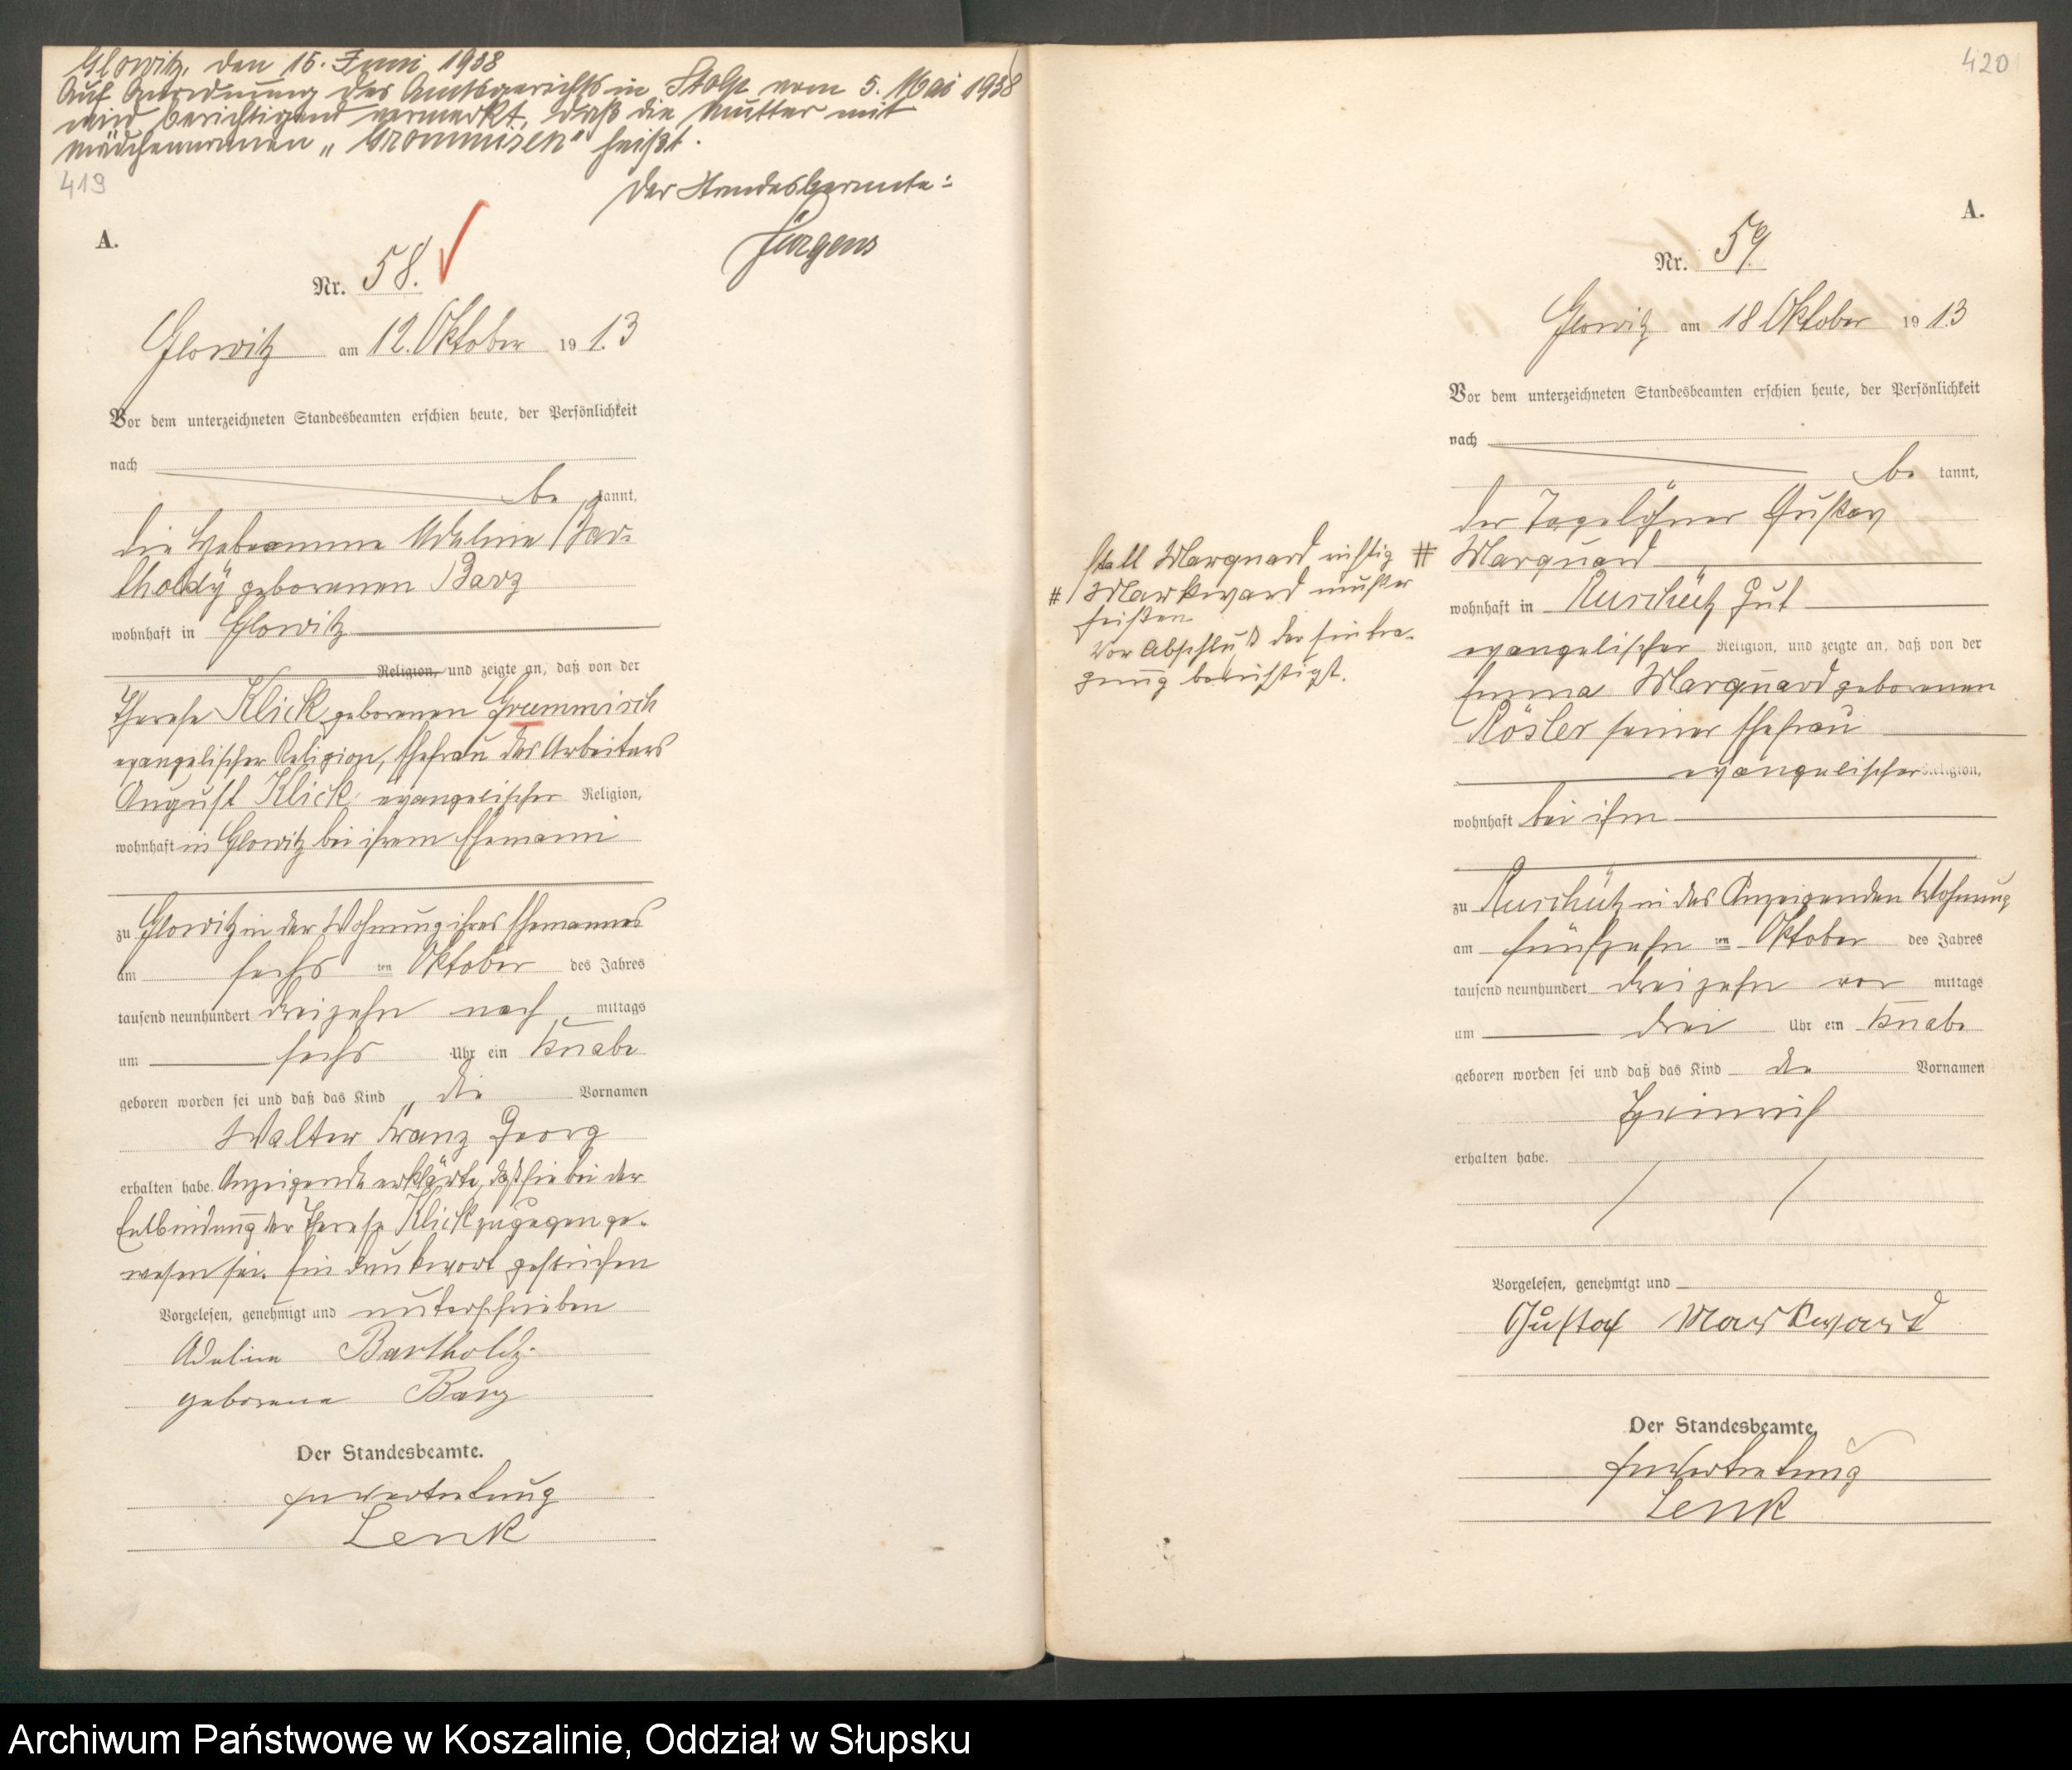 Glowitz, den 15. Juni 1938
Auf Anordnung des Amtsgerichts in Stolp vom 5. Mai 1938
wird berichtigend vermerkt, daß die Mutter mit
Mädchennamen „Grommisch" heißt.
419
Der Standesbeamte:
Jürgens
A.
Nr. 58.
Glowitz am 12. Oktober 1913
Vor dem unterzeichneten Standesbeamten erschien heute, der Persönlichkeit
nach
be kannt,
die Hebeamme Adeline Bar-
tholdy geborenen Barz
wohnhaft in Glowitz
Religion, und zeigte an, daß von der
Therese Klick geborenen Grummisch
evangelischer Religion, Ehefrau des Arbeiters
August Klick, evangelischer Religion,
wohnhaft in Glowitz bei ihrem Ehemann
zu Glowitz in der Wohnung ihres Ehemannes
am sechs ten Oktober des Jahres
tausend neunhundert dreizehn nach mittags
um sechs Uhr ein Knabe
geboren worden sei und daß das Kind die Vornamen
Walter Franz Georg
erhalten habe. Anzeigende erklärte, daß sie bei der
Entbindung der Therese Klick zugegen ge-
wesen sei. Ein Druckwort gestrichen
Vorgelesen, genehmigt und unterschrieben
Adeline Bartholdy.
geborene Barz
Der Standesbeamte.
In Vertretung
Lenk
420
A.
Nr. 59
Glowitz am 18 Oktober 1913
Vor dem unterzeichneten Standesbeamten erschien heute, der Persönlichkeit
nach
be kannt,
der Tagelöhner Gustav
# Marquard
wohnhaft in Ruschütz Gut
evangelischer Religion, und zeigte an, daß von der
Emma Marquard geborenen
Rösler seiner Ehefrau
evangelischer Religion,
wohnhaft bei ihm
zu Ruschütz in des Anzeigenden Wohnung
am fünfzehn ten Oktober des Jahres
tausend neunhundert dreizehn vor mittags
um drei Uhr ein Knabe
geboren worden sei und daß das Kind den Vornamen
Heinrich
erhalten habe.
Vorgelesen, genehmigt und
Gustav Markward
Der Standesbeamte.
In Vertretung
Lenk
statt Marquard richtig
# Markward mußte
heißen
Vor Abschluß der Eintra-
gung berichtigt.
Archiwum Państwowe w Koszalinie, Oddział w Słupsku